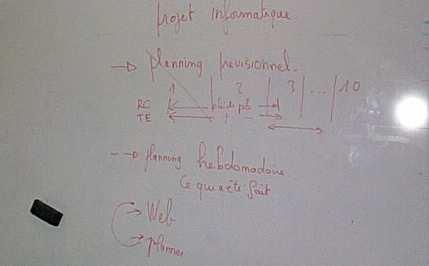 projet informatique.
→ planning previsionnel.
1 2 3 ... 10
RC
TE
→ planning hebdomadaire
ce qui a été fait
→ Web
→ planner